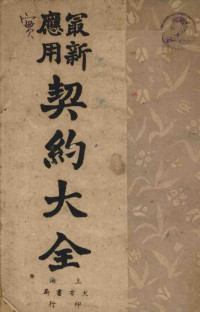 最新
應用
契約大全
上
海
大
書
局
印
行